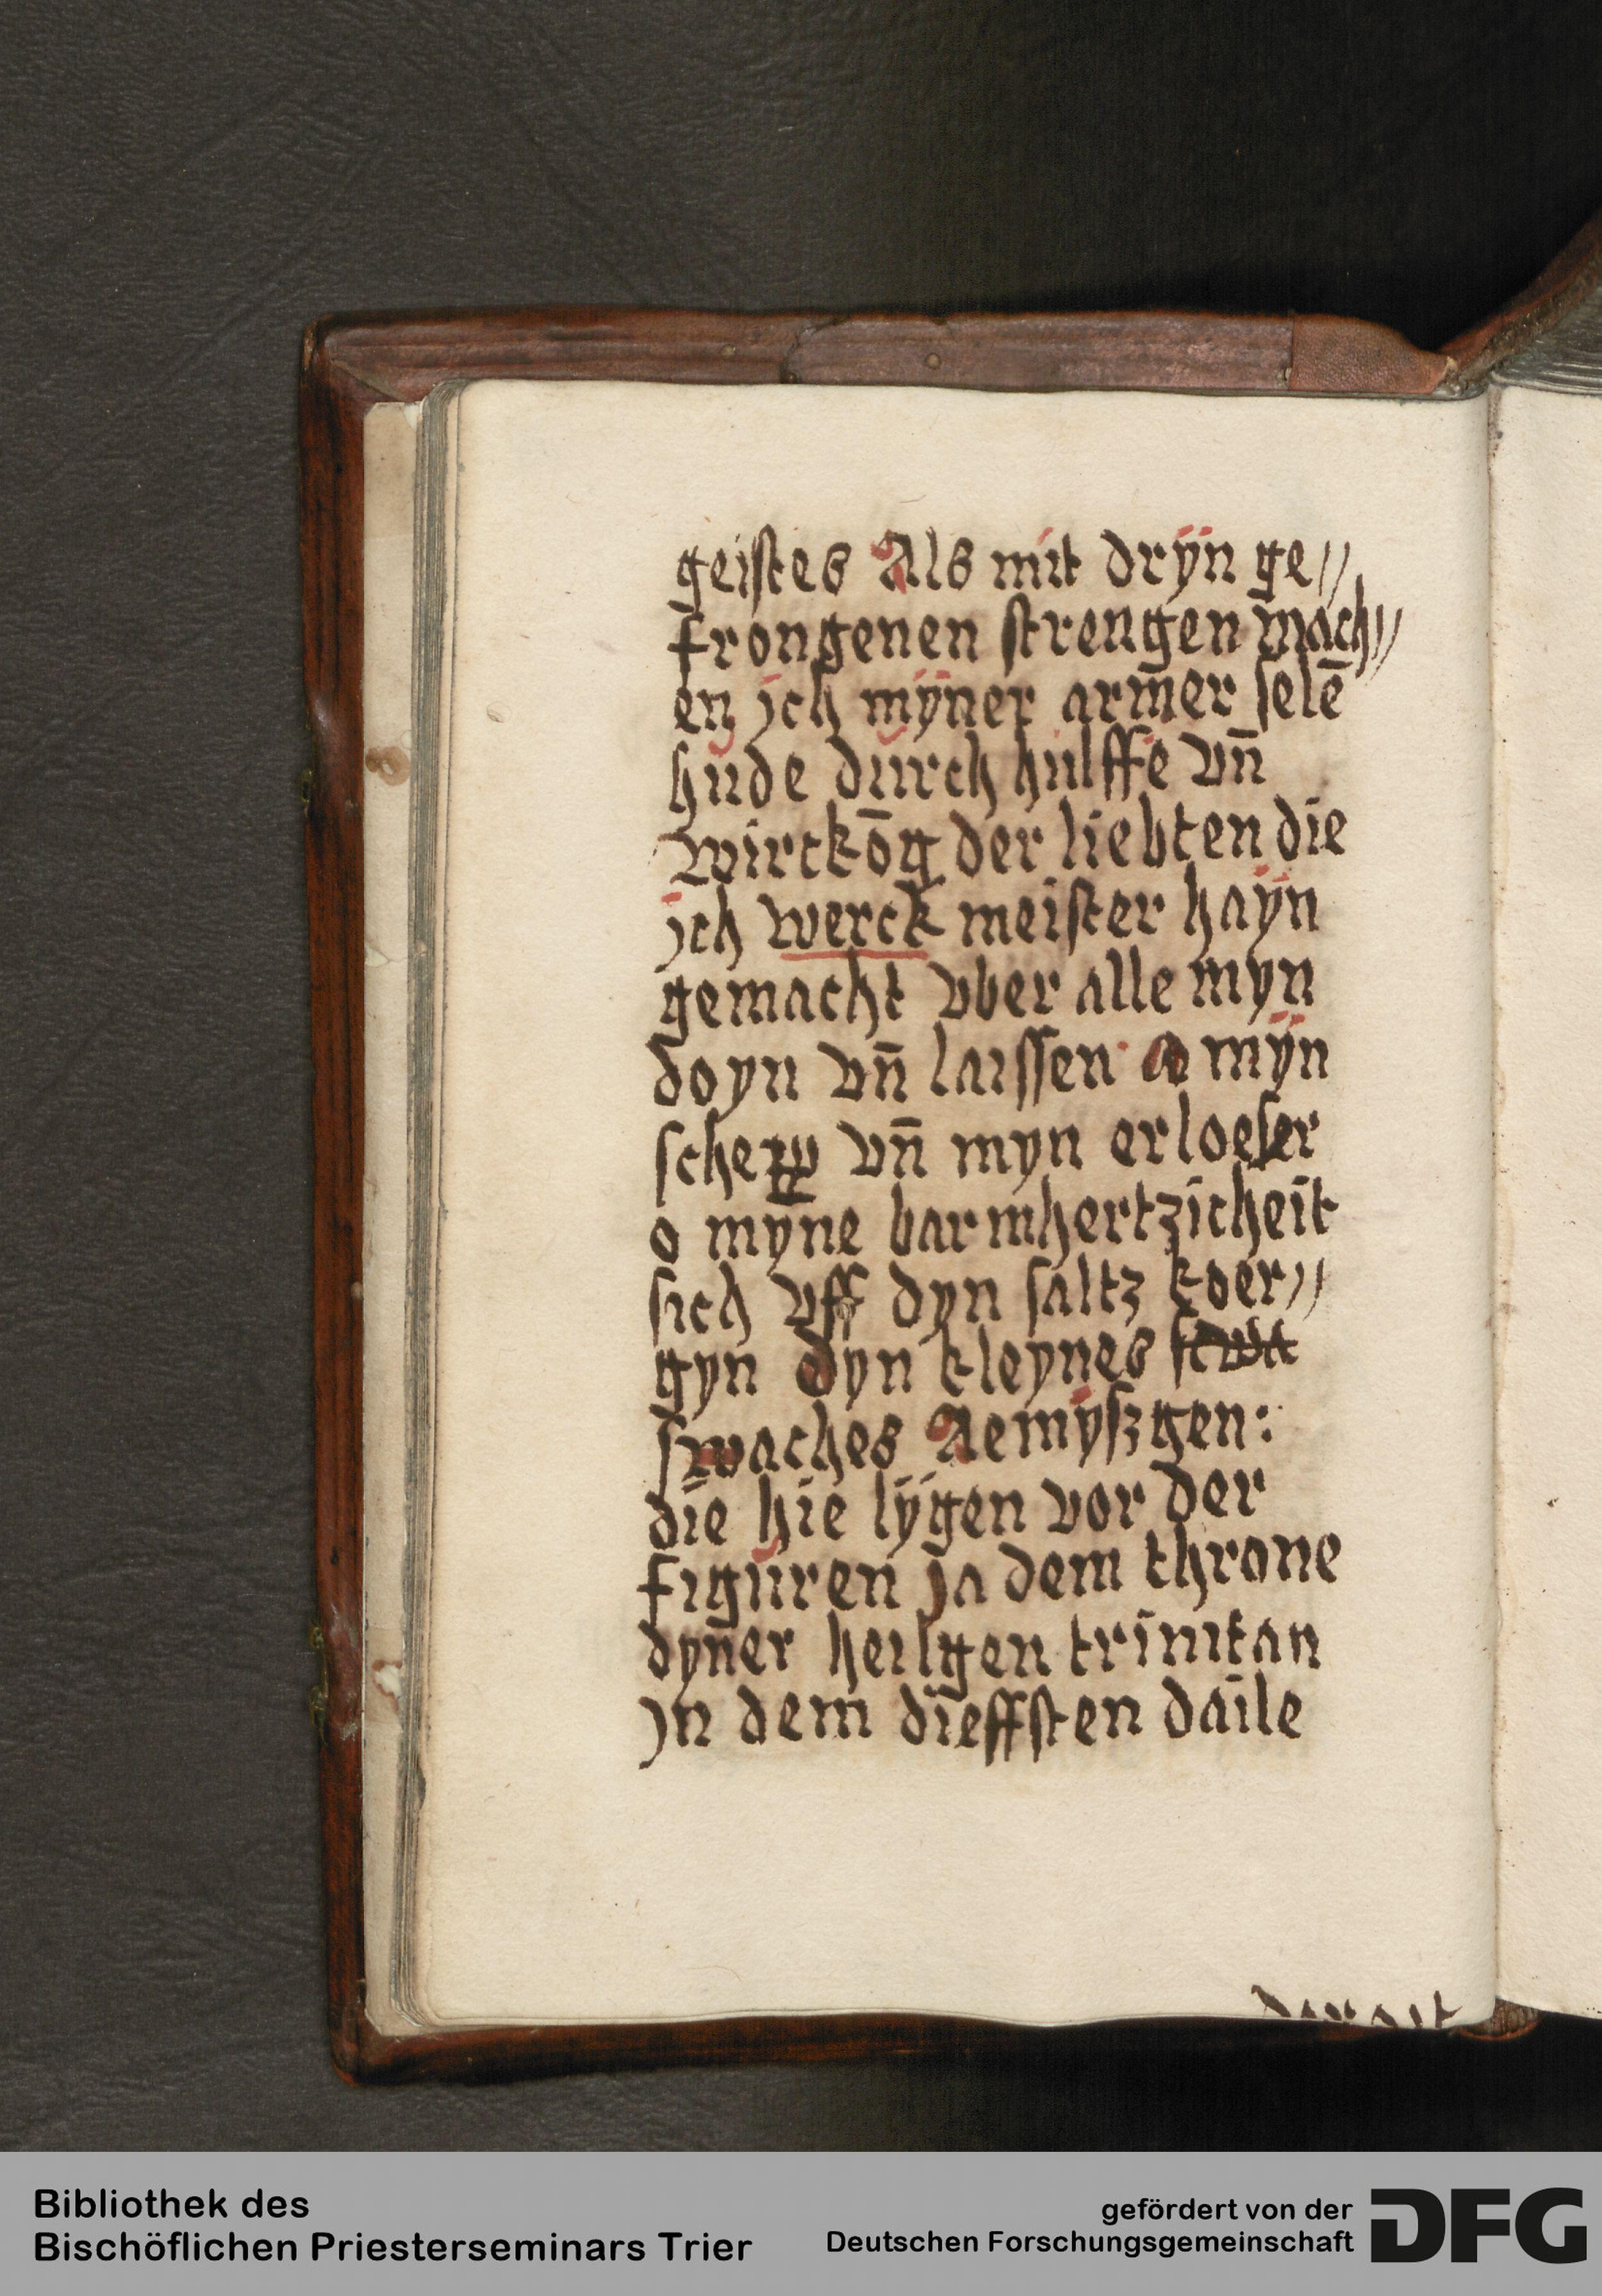 geistes Als mit drÿn ge//
frongenen strengen mach//
en jch mÿner armer selē
hude durch hulffe vn̄
wirckōg der liebten die
jch werck meister haÿn
gemacht vber alle myn
doyn vn̄ laissen a mÿn
vn̄ myn erloeser
o myne barmhertzicheit
sich vff dyn saltz koer//
gyn dyn kleynes
swaches Aemyszgen:
die hie lÿgen vor der
figuren ja dem throne
dyner heilgen trinitan
jn dem dieffsten daile
Bibliothek des
Bischöflichen Priesterseminars Trier
gefördert von der
Deutschen Forschungsgemeinschaft
DFG